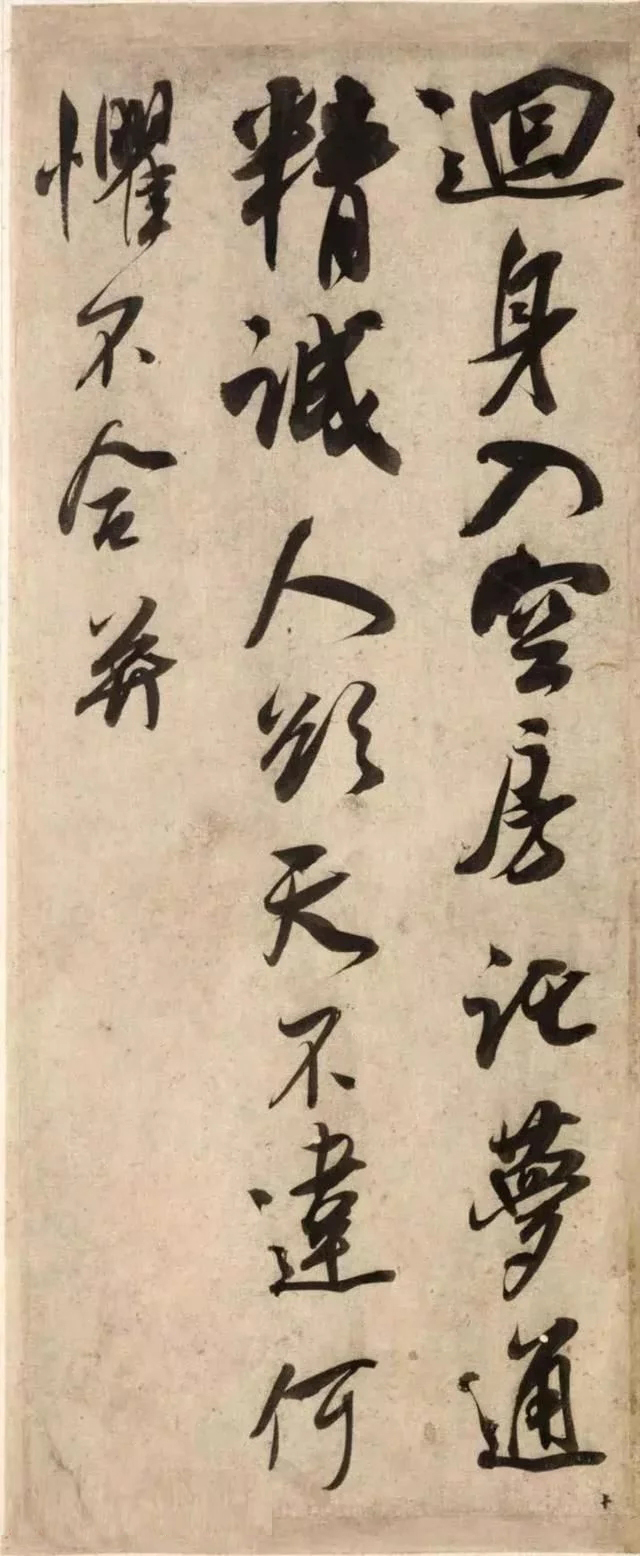 迴身入空房託夢通
精誠人欲天不違何
懼不合并